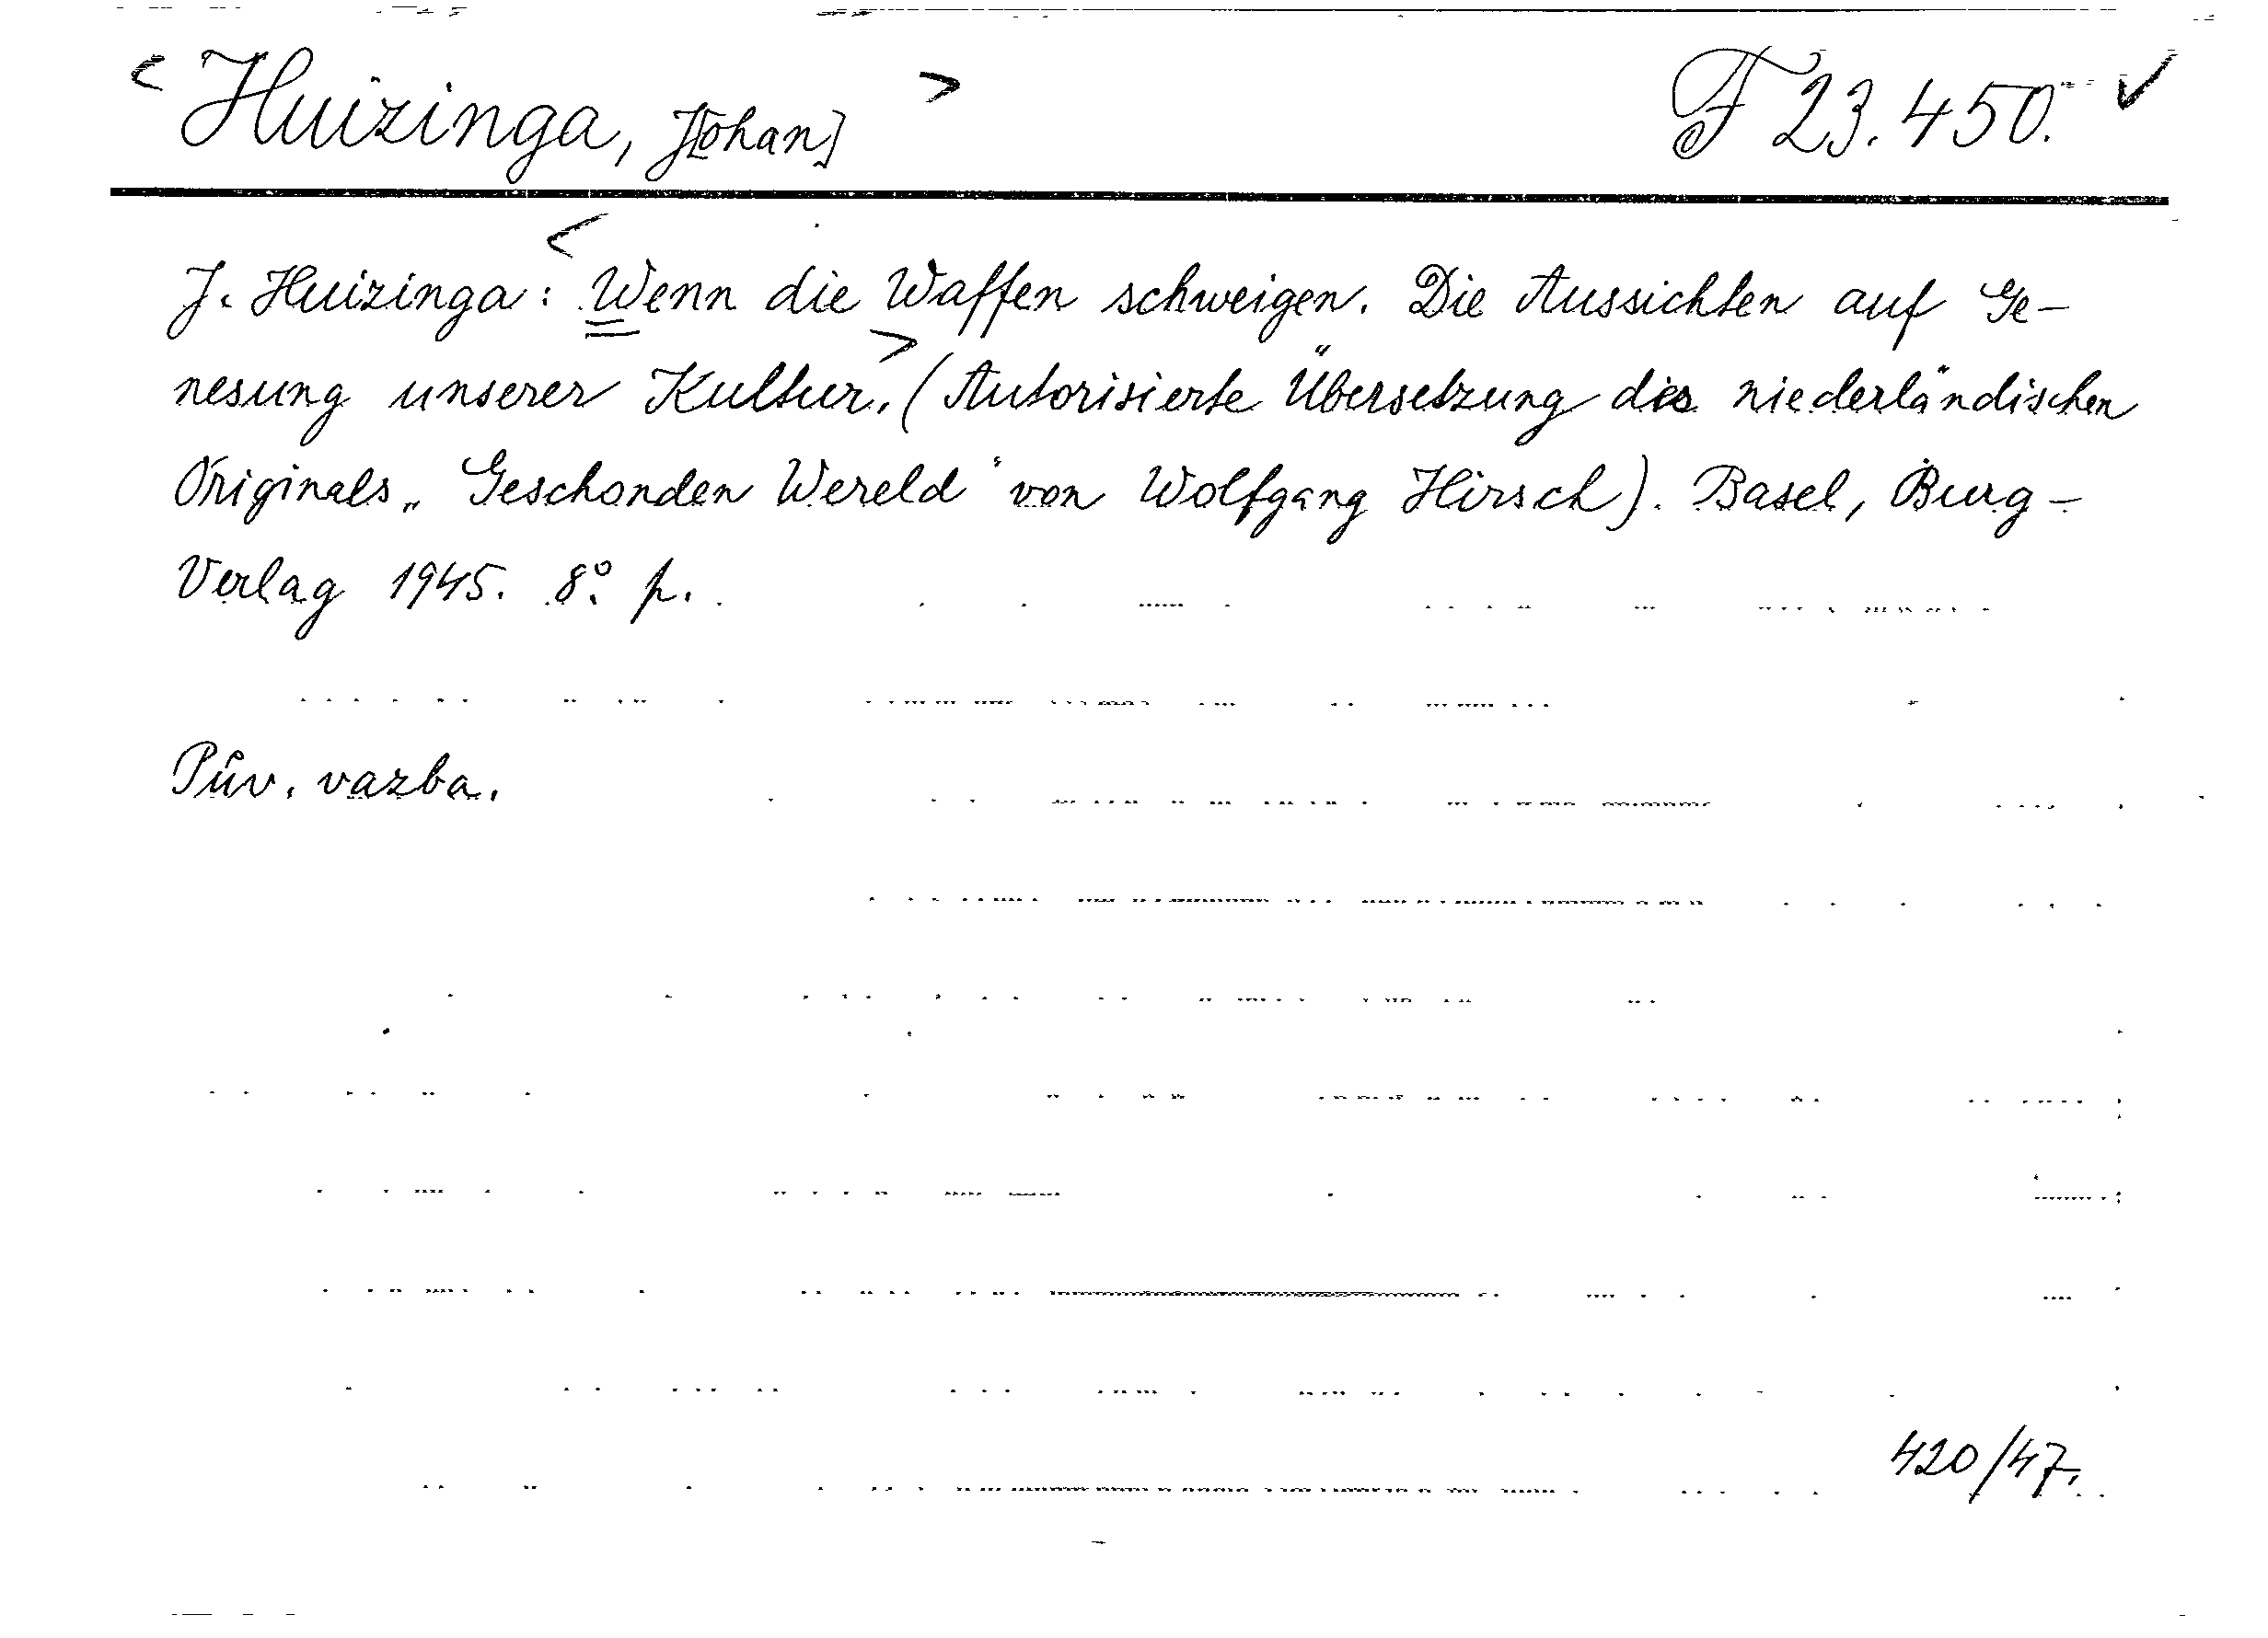 < Huizinga, J[ohan] > F 23.450. ✓
J. Huizinga: < Wenn die Waffen schweigen. Die Aussichten auf Ge-
nesung unserer Kultur. > (Autorisierte Übersetzung des niederländischen
Originals „Geschonden Wereld" von Wolfgang Hirsch). Basel, Burg-
Verlag 1945. 8°. p.
Pův. vazba.
420/47.